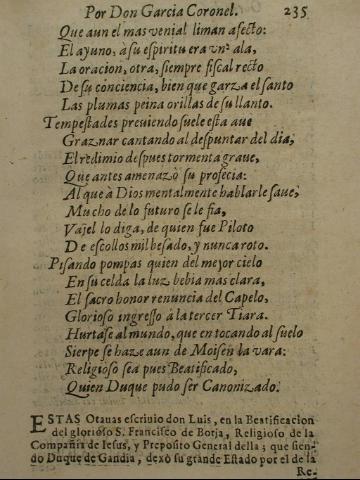 Por Don Garcia Coronel. 235
Que aun el mas venial liman afecto:
El ayuno, a su espiritu era vnª ala,
La oracion, otra, siempre fiscal recto
De su conciencia, bien que garza el santo
Las plumas peina orillas de su llanto.
Tempestades preuiendo suele esta aue
Graznar cantando al despuntar del dia,
El redimio despues tormenta graue,
Que antes amenazò su profecia:
Al que à Dios mentalmente hablarle saue,
Mucho de lo futuro se le fia,
Vajel lo diga, de quien fue Piloto
De escollos mil besado, y nunca roto.
Pisando pompas quien del mejor cielo
En su celda la luz bebia mas clara,
El sacro honor renuncia del Capelo,
Glorioso ingresso à la tercer Tiara.
Hurtase al mundo, que en tocando al suelo
Sierpe se haze aun de Moisen la vara:
Religioso sea pues Beatificado,
Quien Duque pudo ser Canonizado.
ESTAS Otauas escriuio don Luis, en la Beatificacion
del glorioso S. Francisco de Borja, Religioso de la
Compañia de Iesus, y Preposito General della; que sien-
do Duque de Gandia, dexò su grande Estado por el de la
Re-